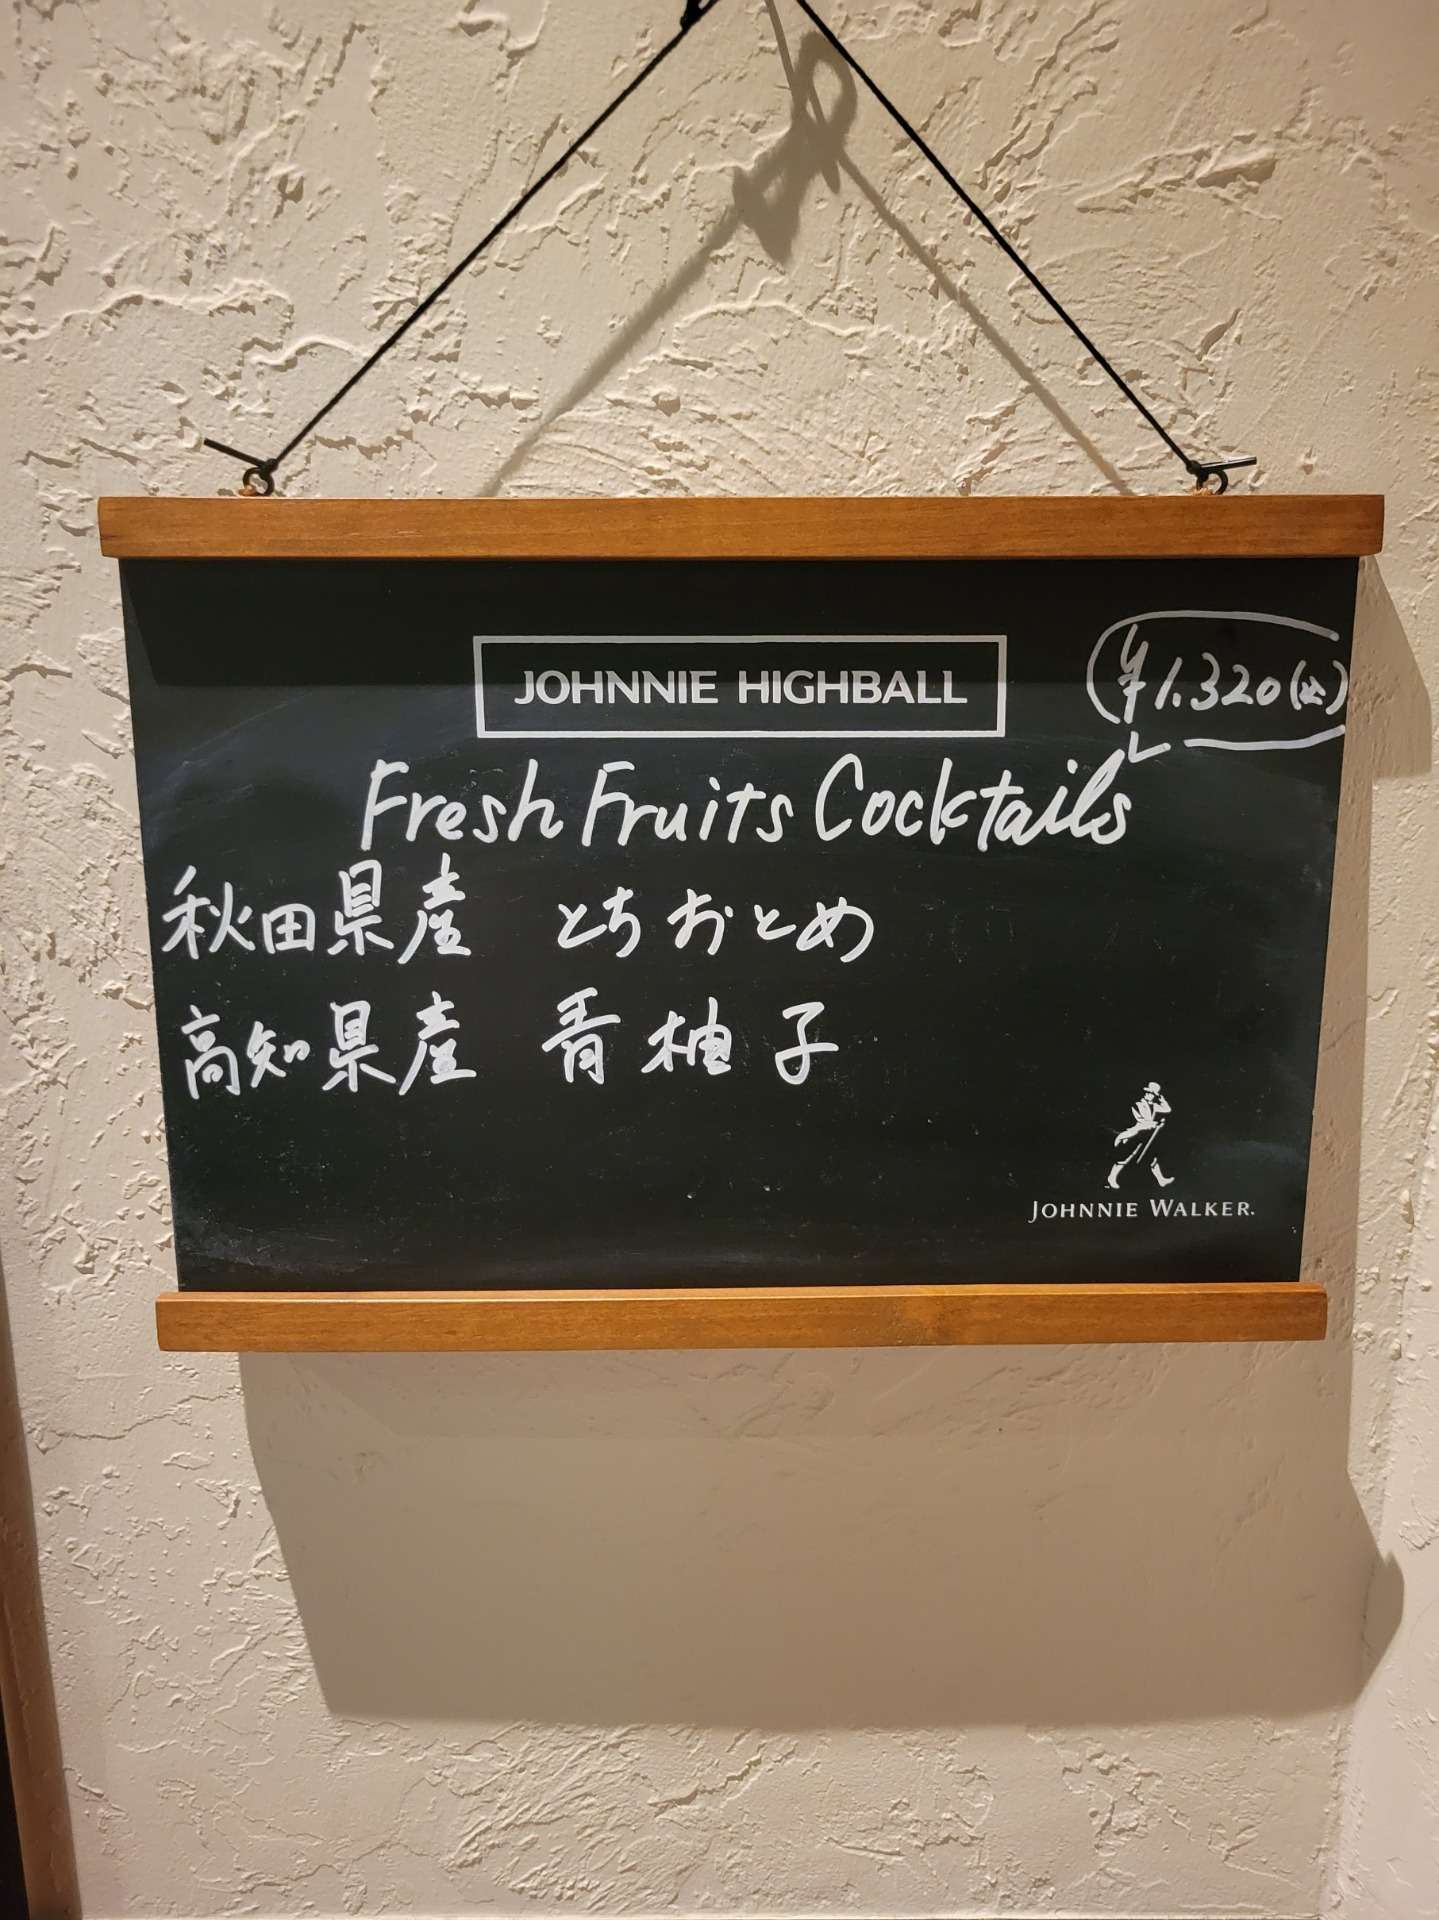 JOHNNIE HIGHBALL
¥1.320(込)
Fresh Fruits Cocktails
秋田県産 とちおとめ
高知県産 青柚子
JOHNNIE WALKER.